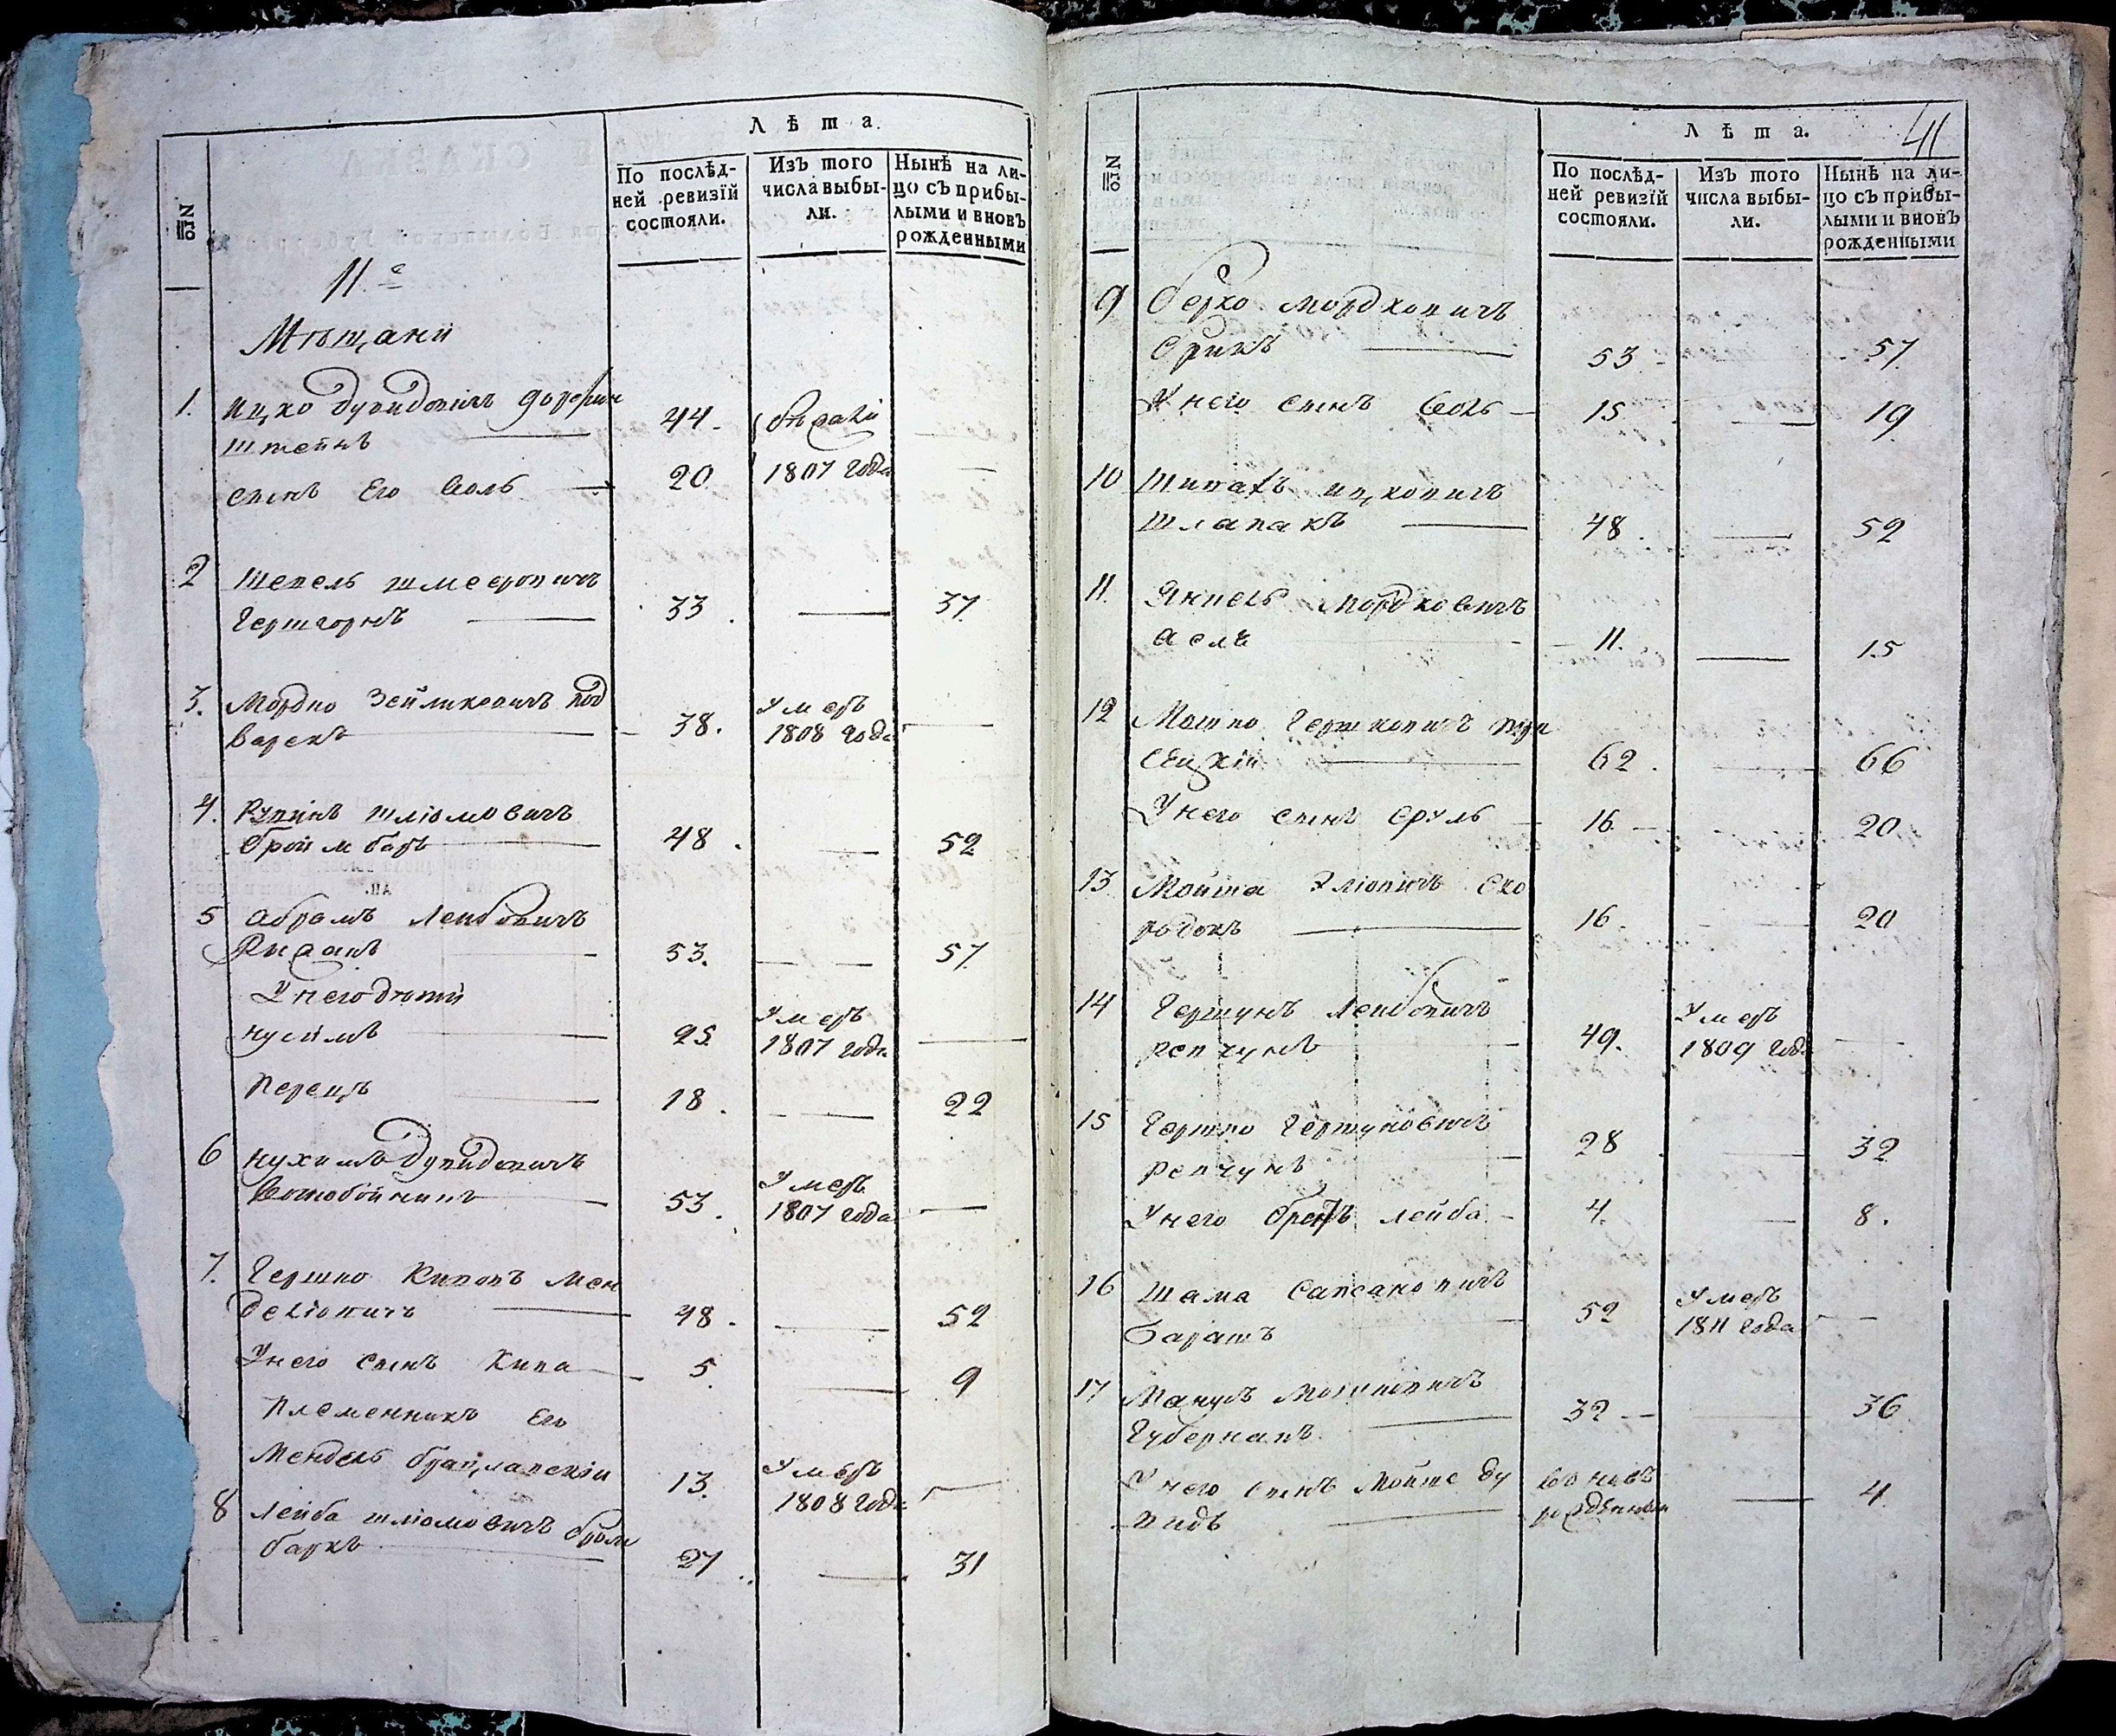 Л ѣ т а.
№
По послѣд-
ней ревизїй
состояли.
Изъ того
числа выбы-
ли.
Нынѣ на ли-
цо съ прибы-
лыми и вновъ
рожденными
11.е
Мѣщани
1. Ицко Дувидовичъ
штейнъ 44.
1807 года
сынъ Его 20
2 Шмееровичъ
Гершгорнъ 33. 37.
3. Мордко Зейликовичъ под
варскъ 38. умеръ
1808 года
4. Рувинъ Шліомовичъ
48. 52
5 Абрамъ Лейбовичъ
53. 57
У него дѣти
Нусимъ 25 умеръ
1807 года
Перецъ 18. 22
6 Нухимъ Дувидовичъ
53. умеръ
1807 года
7. Гершко Мен
деліовичъ 48. 52
У него сынъ Кива 5 9
Племенникъ Его
Мендель 13. умеръ
1808 года
8 Лейба Шліомовичъ
27 31
Л ѣ т а.
41
№
По послѣд-
ней ревизїй
состояли.
Изъ того
числа выбы-
ли.
Нынѣ на ли-
цо съ прибы-
лыми и вновъ
рожденными
9 Берко Мордковичъ
53 57
У него сынъ 15 19
10 Ицковичъ
Шлапакъ 48. 52
11. Янкель Мордковичъ
11. 15
12 Мошко Гершковичъ
62. 66
У него сынъ Сруль 16 20
13 Мойша Эліовичъ Ско
родокъ 16. 20
14 Гершунъ Лейбовичъ
49. умеръ
1809 года
15 Гершко Гершуновичъ
28 32
У него братъ Лейба 4. 8.
16 Шама Сапсановичъ
Барашъ 52 умеръ
1811 года
17 Манусъ
Губернапъ 32 36
У него сынъ Мойше Ду
видъ вновъ
рожденный 4